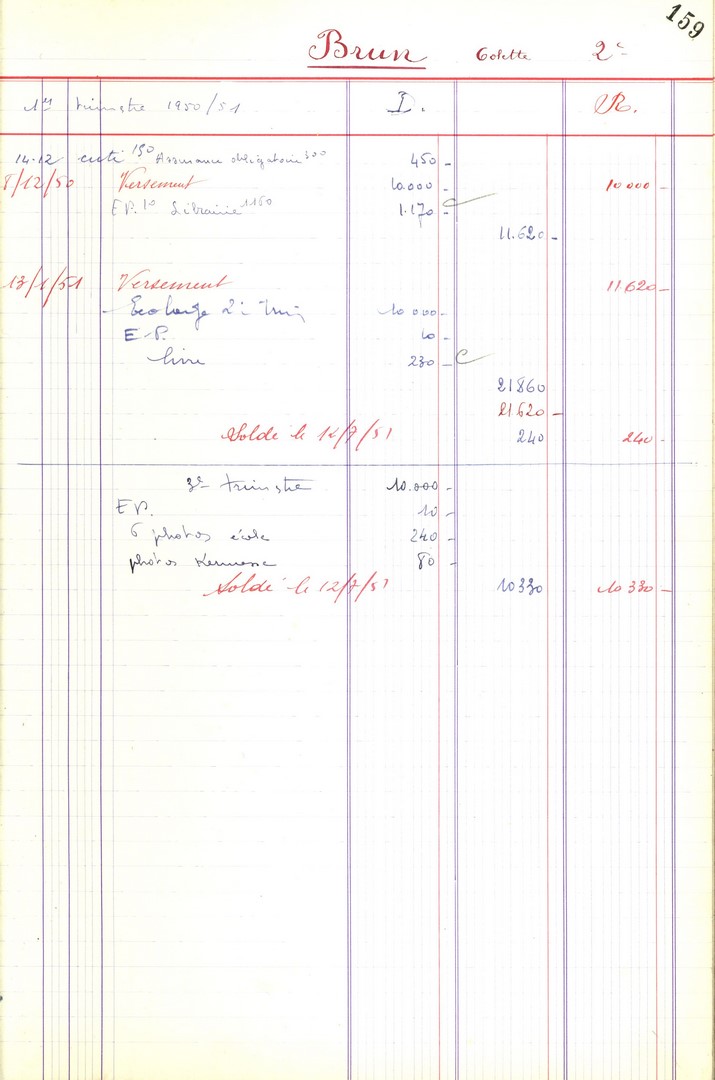 159
Brun Colette 2e
1er trimestre 1950/51 D. R.
14.12 carte 150 Assurance obligatoire 300 450 -
8/12/50 Versement 10.000 - 10 000 -
E.P. 10 Librairie 1160 1.170 -
11.620 -
13/1/51 Versement 11 620 -
Ecolage 2e Trim 10 000 -
E.P. 10 -
livre 230 - C
21 860
21 620 -
Soldé le 12/7/51 240 240 -
3e trimestre 10.000 -
E P. 10 -
6 photos école 240 -
photos Kermesse 80 -
Soldé le 12/7/51 10 330 10 330 -